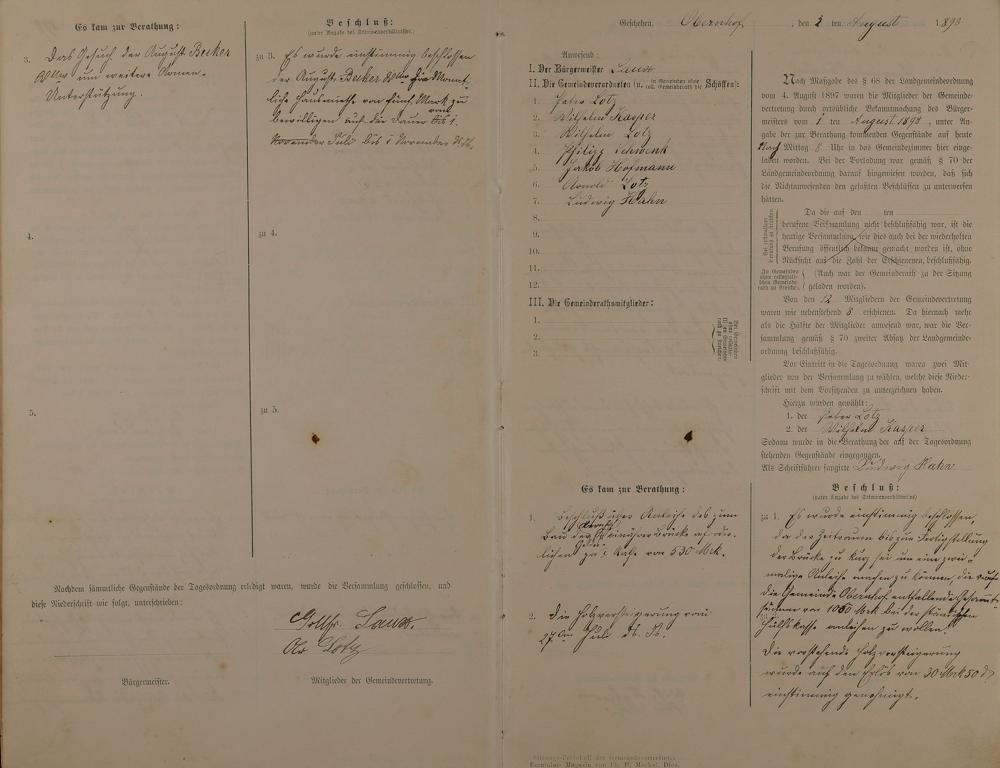 Es kam zur Berathung:
3. Das Gesuch der August Becker
Wtw um weitere Armen-
Unterstützung.
4.
5.
Beschluß:
(unter Angabe des Stimmenverhältnisses).
zu 3. Es wurde einstimmig beschlossen
der August Becker Wtw
liche Hausmiethe von fünf Mark zu
bewilligen auf die Dauer vom 1.
November Juli bis 1 November
zu 4.
zu 5.
Nachdem sämmtliche Gegenstände der Tagesordnung erledigt waren, wurde die Versammlung geschlossen, und
diese Niederschrift wie folgt, unterschrieben:
Lotz
Bürgermeister.
Mitglieder der Gemeindevertretung.
Geschehen, Obernhof, den 2 ten August 1898
Anwesend:
I. Der Bürgermeister
II. Die Gemeindeverordneten (u. in Gemeinden ohne coll. Gemeinderath die Schöffen):
1. Peter Lotz
2. Wilhelm Kasper
3. Wilhelm Lotz
4. Philipp Schwenk
5. Jakob Hofmann
6. Arnold Lotz
7. Ludwig Hahn
8.
9.
10.
11.
12.
III. Die Gemeinderathsmitglieder:
1.
2.
3.
Nach Maßgabe des § 68 der Landgemeindeordnung
vom 4. August 1897 waren die Mitglieder der Gemeinde-
vertretung durch ortsübliche Bekanntmachung des Bürger-
meisters vom 1 ten August 1898, unter An-
gabe der zur Berathung kommenden Gegenstände auf heute
Nach Mittag 8 Uhr in das Gemeindezimmer hier einge-
laden worden. Bei der Vorladung war gemäß § 70 der
Landgemeindeordnung darauf hingewiesen worden, daß sich
die Nichtanwesenden den gefaßten Beschlüssen zu unterwerfen
hätten.
Da die auf den ten
berufene Versammlung nicht beschlußfähig war, ist die
heutige Versammlung, wie dies auch bei der wiederholten
Berufung öffentlich bekannt gemacht worden ist, ohne
Rücksicht auf die Zahl der Erschienenen, beschlußfähig.
(Auch war der Gemeinderath zu der Sitzung
geladen worden).
Von den 12 Mitgliedern der Gemeindevertretung
waren wie nebenstehend 8 erschienen. Da hiernach mehr
als die Hälfte der Mitglieder anwesend war, war die Ver-
sammlung gemäß § 70 zweiter Absatz der Landgemeinde-
ordnung beschlußfähig.
Vor Eintritt in die Tagesordnung waren zwei Mit-
glieder von der Versammlung zu wählen, welche diese Nieder-
schrift mit dem Vorsitzenden zu unterzeichnen haben.
Hierzu wurden gewählt:
1. der Peter Lotz
2. der Wilhelm Kasper
Sodann wurde in die Berathung der auf der Tagesordnung
stehenden Gegenstände eingegangen.
Als Schriftführer fungirte Ludwig Hahn
Es kam zur Berathung:
1. Beschluß über Anleihe des zum
Bau der Brücke erforder-
lichen von 530 Mrk.
2. Die Holzversteigerung vom
27. Juli
Beschluß:
(unter Angabe des Stimmenverhältnisses)
zu 1. Es wurde einstimmig beschlossen,
da der Zeitraum bis zur Fertigstellung
der Brücke zu kurz sei um eine zwei-
malige Anleihe machen zu können, die auf
die Gemeinde Obernhof entfallende Gesammt-
summe von 1060 Mrk bei der
Hülfskasse anleihen zu wollen.
Die vorstehende Holzversteigerung
wurde auf den Erlös von 30 Mrk 50
einstimmig genehmigt.
Sitzungs-Protokoll der Gemeindevertretung.
Formular-Magazin von Ph. H. Meckel, Diez.